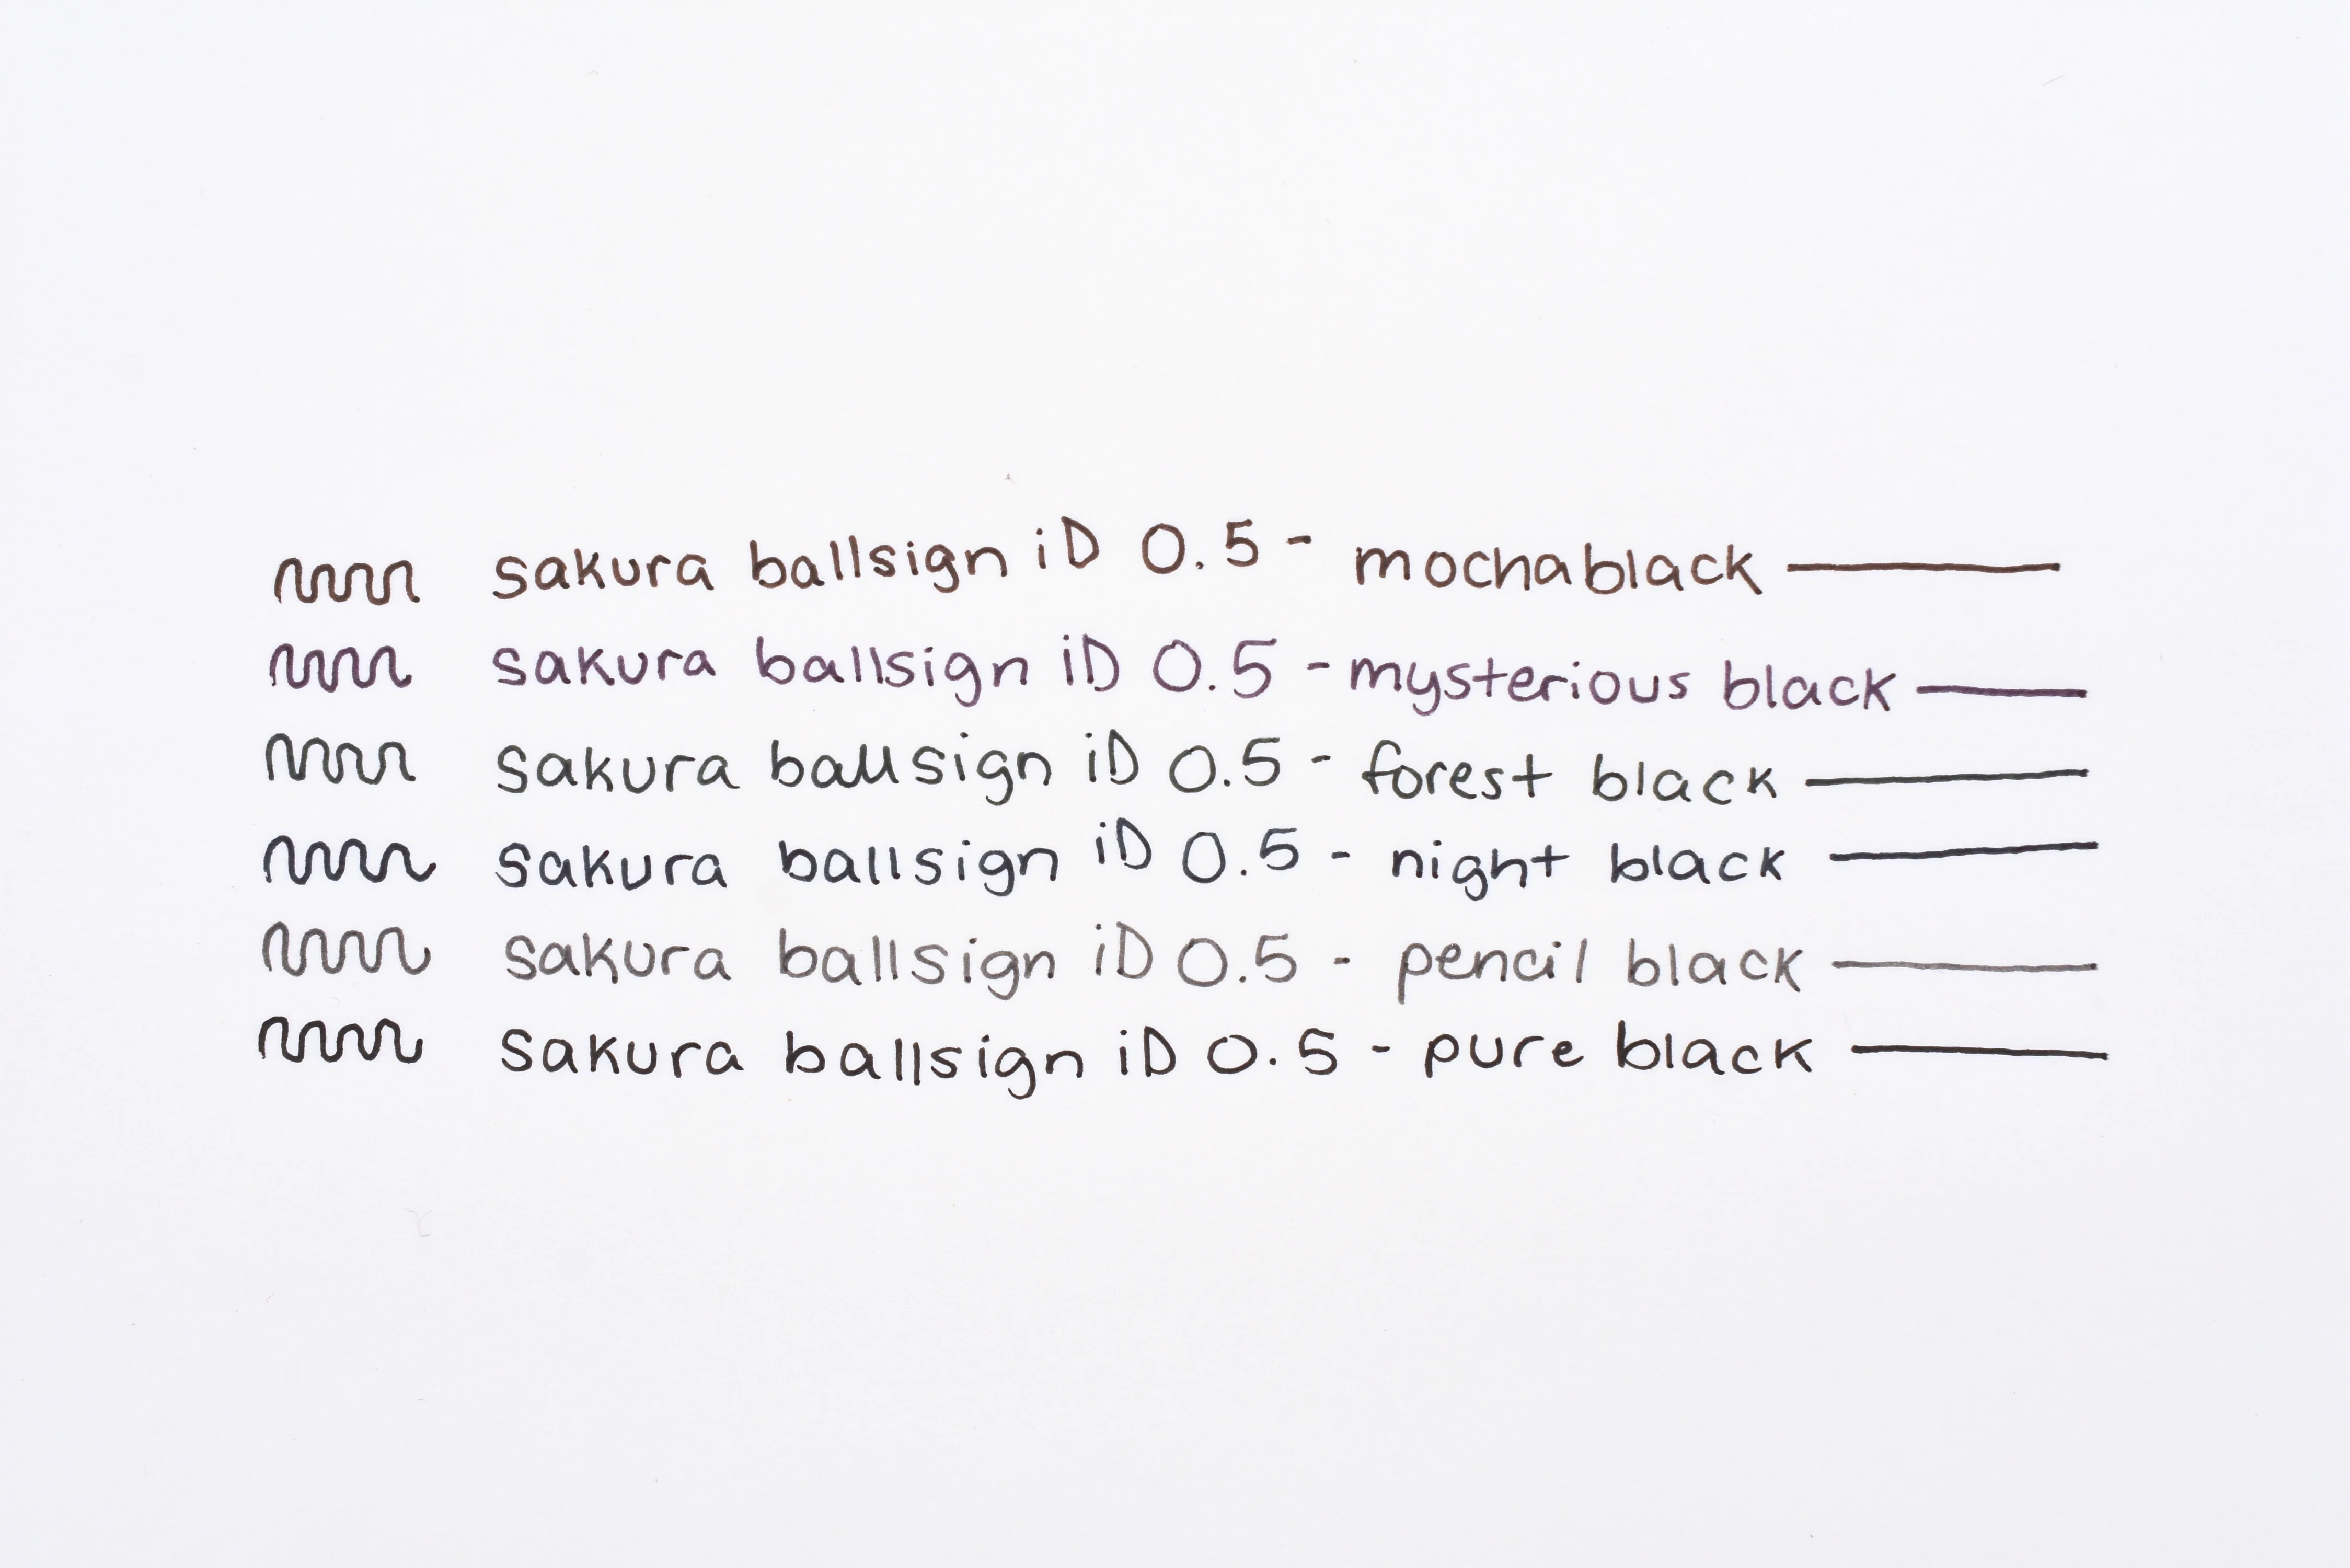 sakura ballsign iD 0.5 - mocha black
sakura ballsign iD 0.5 - mysterious black
sakura ballsign iD 0.5 - forest black
sakura ballsign iD 0.5 - night black
sakura ballsign iD 0.5 - pencil black
sakura ballsign iD 0.5 - pure black